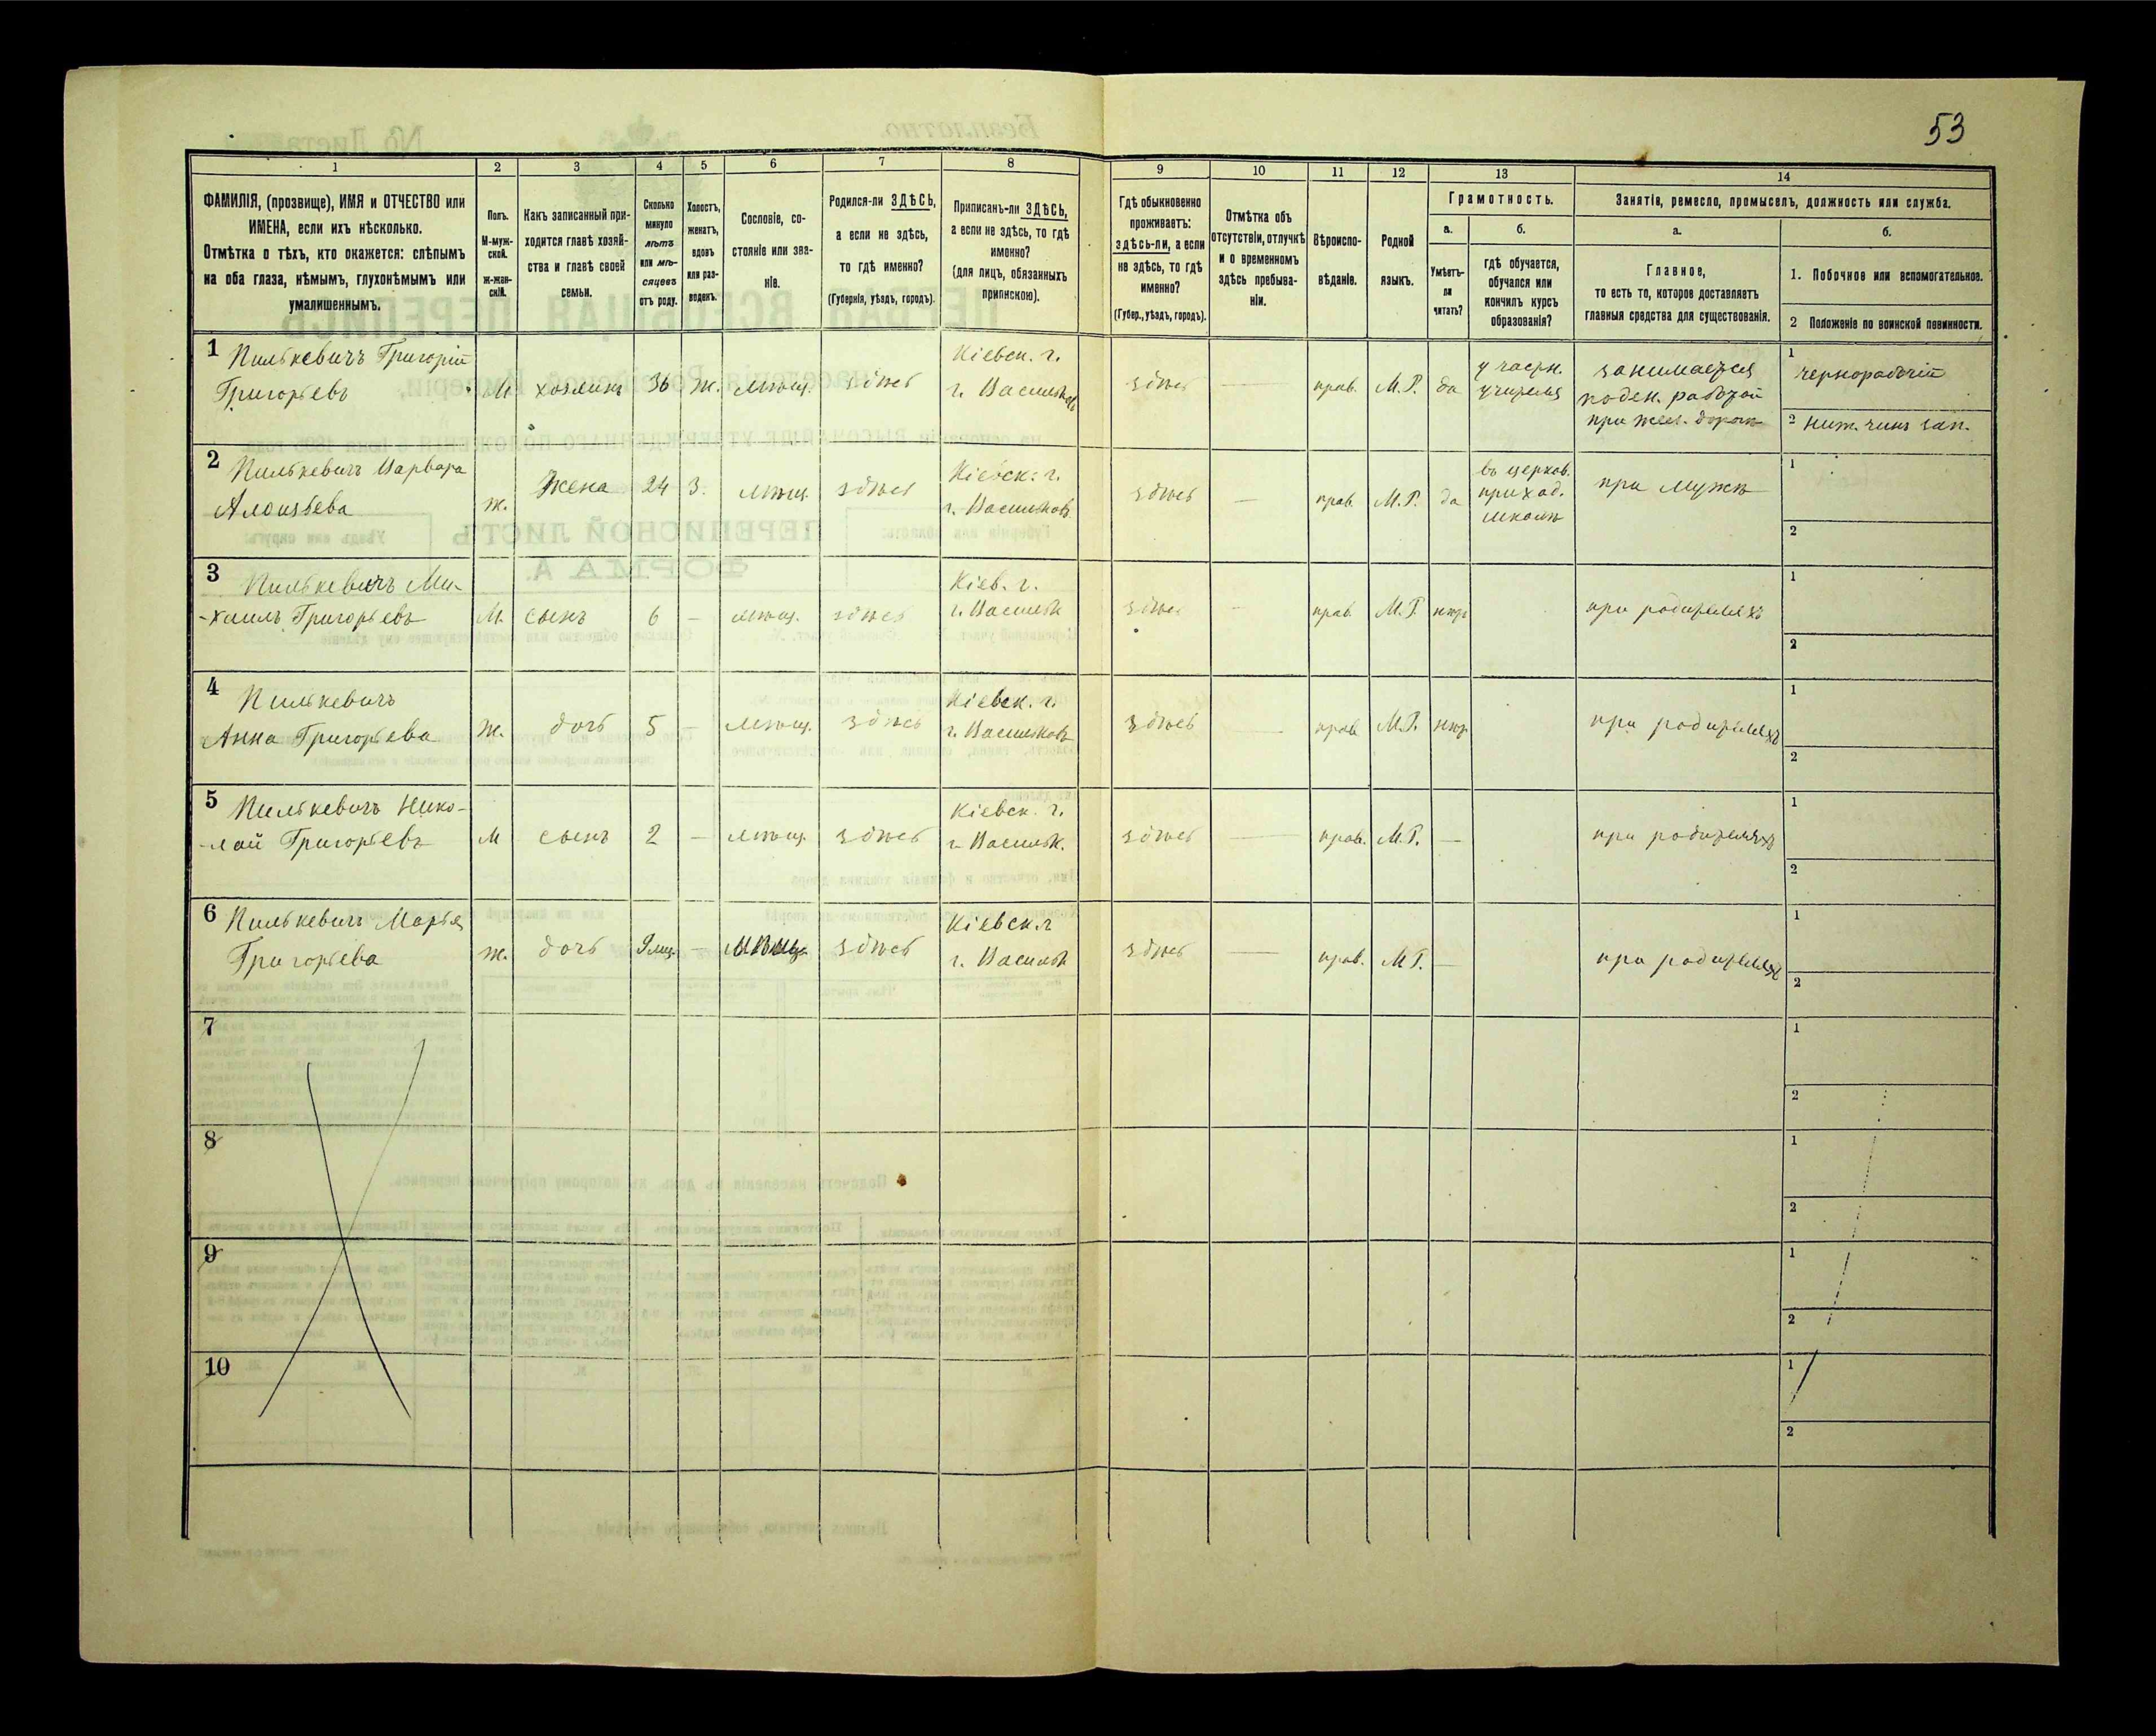 53
1
2
3
4
5
6
7
8
9
10
11
12
13
14
ФАМИЛІЯ, (прозвище), ИМЯ и ОТЧЕСТВО или
ИМЕНА, если ихъ нѣсколько.
Отмѣтка о тѣхъ, кто окажется: слѣпымъ
на оба глаза, нѣмымъ, глухонѣмымъ или
умалишеннымъ.
Полъ.
М-муж-
ской.
ж-жен-
скій.
Какъ записанный при-
ходится главѣ хозяй-
ства и главѣ своей
семьи.
Сколько
минуло
лѣтъ
или мѣ-
сяцевъ
отъ роду.
Холостъ,
женатъ,
вдовъ
или раз-
веденъ.
Сословіе, со-
стояніе или зва-
ніе.
Родился-ли ЗДѢСЬ,
а если не здѣсь,
то гдѣ именно?
(Губернія, уѣздъ, городъ).
Приписанъ-ли ЗДѢСЬ,
а если не здѣсь, то гдѣ
именно?
(для лицъ, обязанныхъ
припискою).
Гдѣ обыкновенно
проживаетъ:
здѣсь-ли, а если
не здѣсь, то гдѣ
именно?
(Губер., уѣздъ, городъ).
Отмѣтка объ
отсутствіи, отлучкѣ
и о временномъ
здѣсь пребыва-
ніи.
Вѣроиспо-
вѣданіе.
Родной
языкъ.
Грамотность.
а.
Умѣетъ-
ли
читать?
б.
гдѣ обучается,
обучался или
кончилъ курсъ
образованія?
Занятіе, ремесло, промыселъ, должность или служба.
а.
Главное,
то есть то, которое доставляетъ
главныя средства для существованія.
б.
1. Побочное или вспомогательное.
2 Положеніе по воинской повинности.
1 Пилькевичъ Григорій
Григорьевъ
М.
хозяинъ
36
Ж.
мѣщ.
здѣсь
Кіевск. г.
г. Васильковъ
здѣсь
—
прав.
М.Р.
да
у частн.
учителя
занимается
поден. работой
при жел. дорогѣ
1 чернорабочій
2 Ниж. чинъ зап.
2 Пилькевичъ Варвара
Алоизьева
Ж.
Жена
24
З.
мѣщ.
здѣсь
Кіевск. г.
г. Васильковъ
здѣсь
—
прав.
М.Р.
да
въ церков.
приход.
школѣ
при мужѣ
1
2
3 Пилькевичъ Ми-
-хаилъ Григорьевъ
М.
сынъ
6
—
мѣщ.
здѣсь
Кіев. г.
г. Васильк
здѣсь
—
прав.
М.Р.
нѣт
при родителяхъ
1
2
4 Пилькевичъ
Анна Григорьева
Ж.
дочь
5
—
мѣщ.
здѣсь
Кіевск. г.
г. Васильковъ
здѣсь
—
прав
М.Р.
нѣт
при родителяхъ
1
2
5 Пилькевичъ Нико-
-лай Григорьевъ
М
сынъ
2
—
мѣщ.
здѣсь
Кіевск. г.
г Васильк.
здѣсь
—
прав.
М.Р.
—
при родителяхъ
1
2
6 Пилькевичъ Марья
Григорьева
Ж.
дочь
9 мц.
—
мѣщ.
здѣсь
Кіевск.г
г. Васильк
здѣсь
—
прав.
М Р.
—
при родителяхъ
1
2
7
1
2
8
1
2
9
1
2
10
1
2